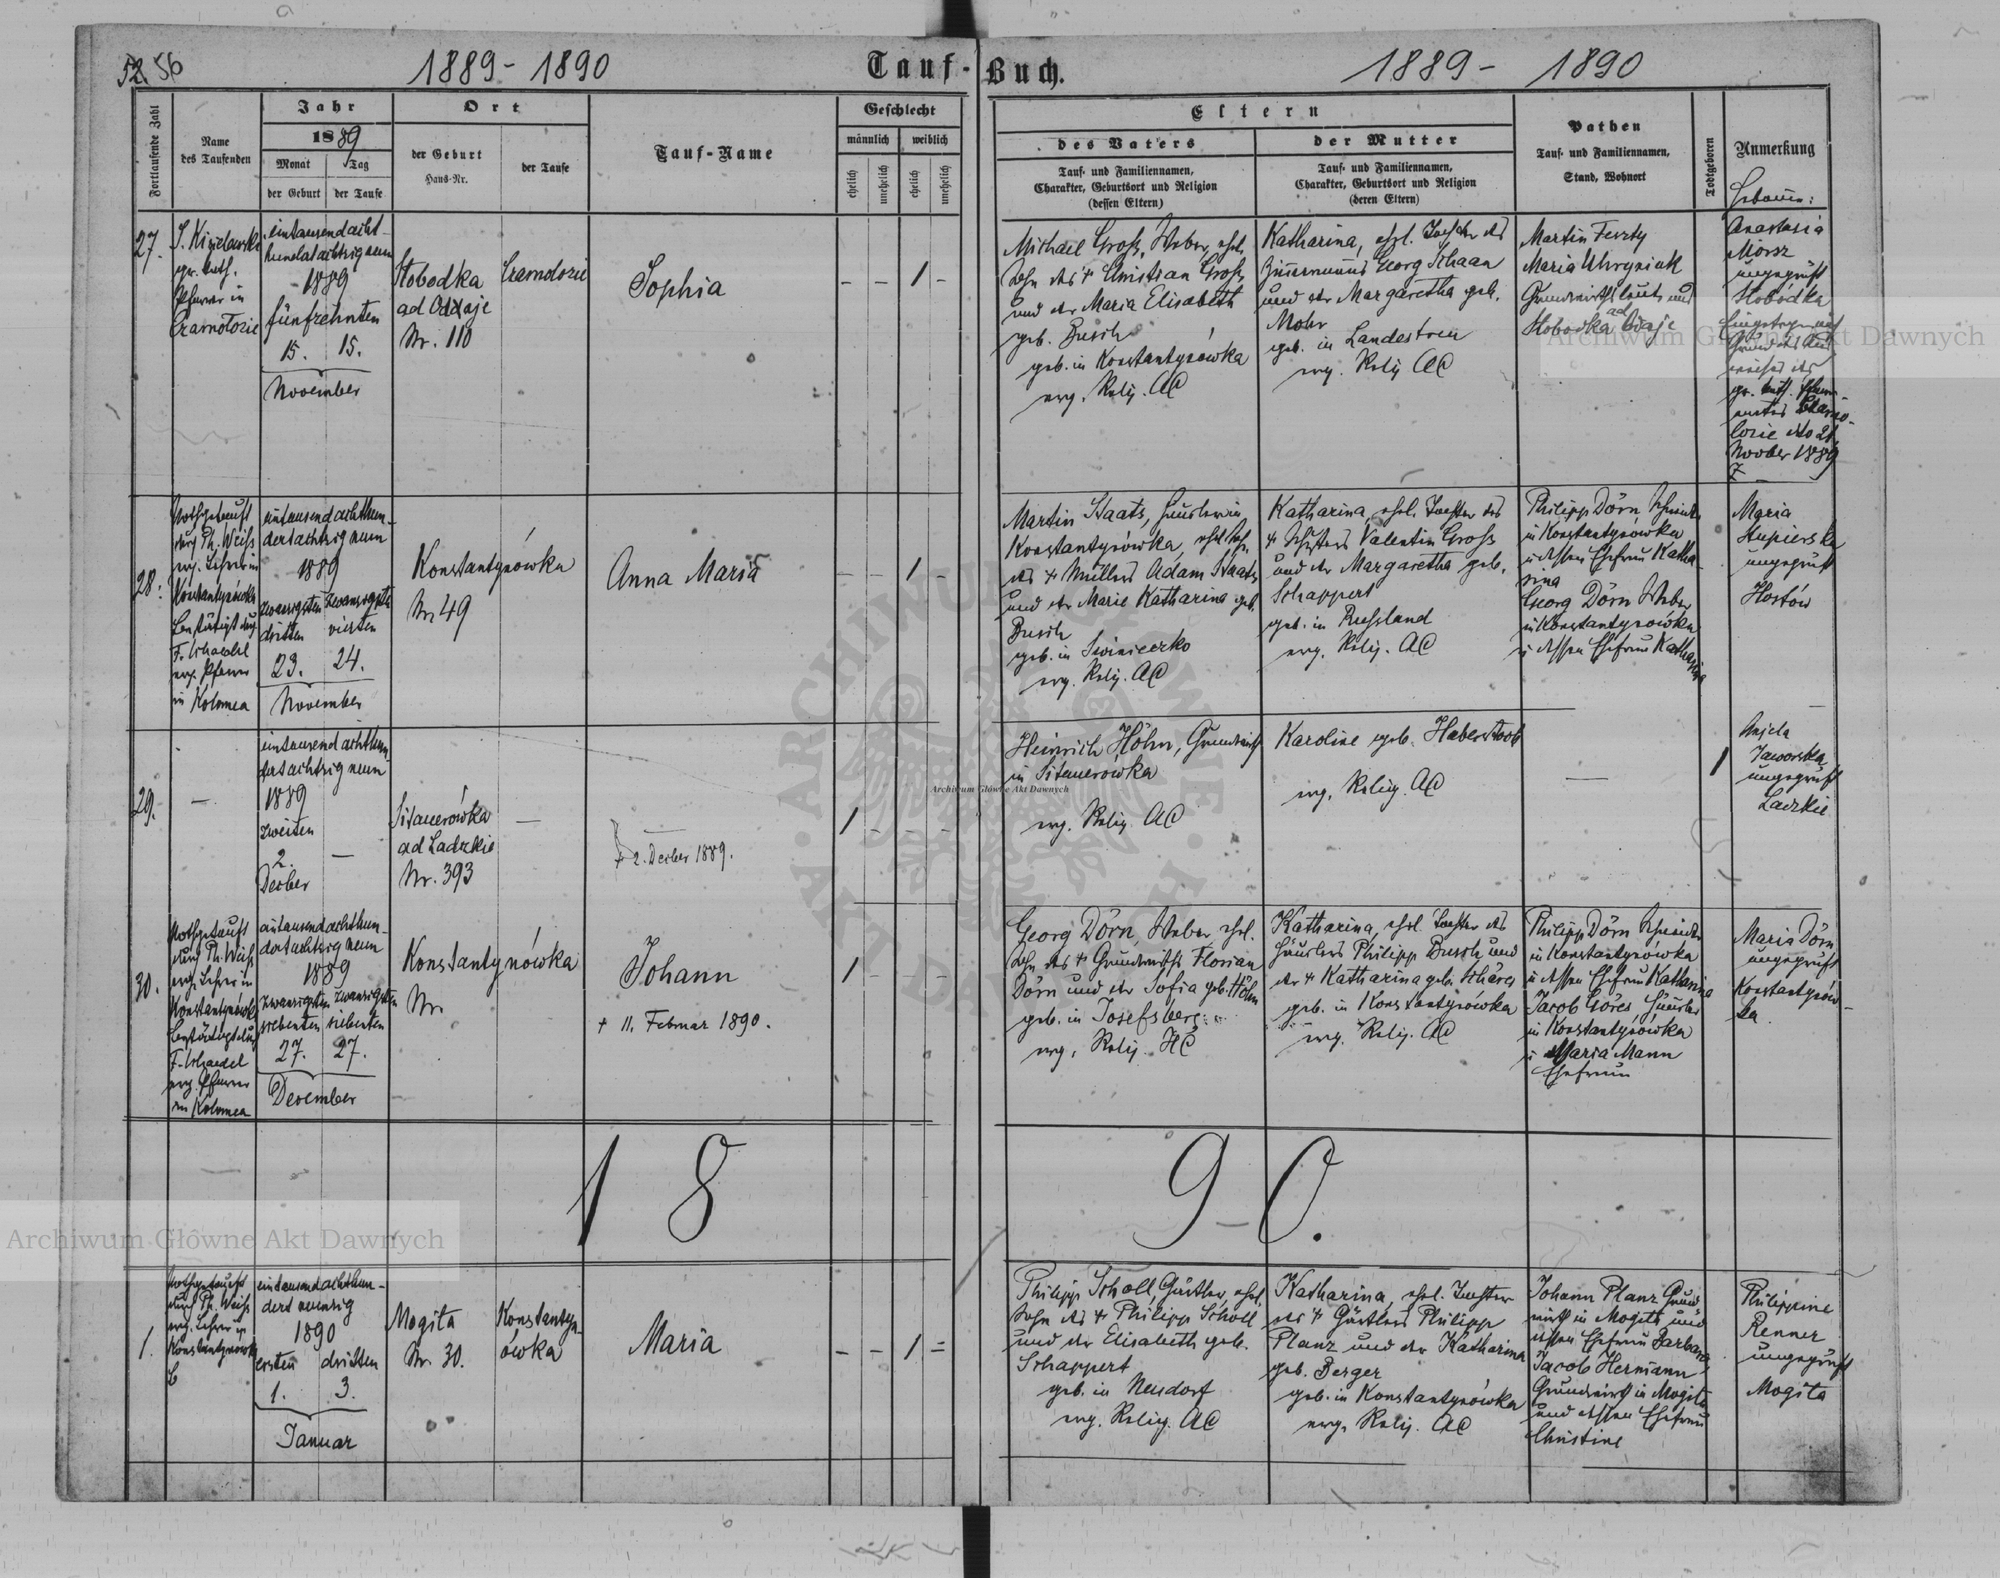 52. 56
1889 - 1890
Tauf-Buch.
1889 - 1890
Fortlaufende Zahl
Name
des Taufenden
Jahr
1889
Monat
Tag
der Geburt
der Taufe
Ort
der Geburt
Haus-Nr.
der Taufe
Tauf-Name
Geschlecht
männlich
weiblich
ehelich
unehelich
ehelich
unehelich
Eltern
des Vaters
Tauf- und Familiennamen,
Charakter, Geburtsort und Religion
(dessen Eltern)
der Mutter
Tauf- und Familiennamen,
Charakter, Geburtsort und Religion
(deren Eltern)
Pathen
Tauf- und Familiennamen,
Stand, Wohnort
Todtgeboren
Anmerkung
27.
gr. kath.
Pfarrer in
eintausendacht-
hundertachtzigneun
1889
fünfzehnten
15. 15.
November
Slobodka
ad Odaje
Nr. 110
Sophia
- - 1 -
Michael Groß, Weber, ehel.
Sohn des + Christian Groß
und der Maria Elisabeth
geb. Busch
geb. in Konstantynówka
evg. Relig. AC
Katharina, ehel. Tochter des
Zimmermanns Georg Schaan
und der Margaretha geb.
Mohr
geb. in Landestreu
evg. Relig AC
Martin Ferzty
Maria Uhryniak
Grundwirthsleute und
Slobodka ad Odaje
Hebamme:
Anastasia
Morsz
ungeprüft
Slobódka
gr. kath.
dto 21.
Novber 1889
28.
Nothgetauft
durch Ph. Weiß
evg. Lehrer in
Konstantynówka
Bestätigt durch
F. Schaedel
evg. Pfarrer
in Kolomea
eintausendachthun-
dertachtzigneun
1889
zwanzigsten zwanzigsten
dritten vierten
23. 24.
November
Konstantynówka
Nr 49
Anna Maria
- - 1 -
Martin Staats, Häusler in
Konstantynówka, ehel. Sohn
des + Müllers Adam Staats
und der Marie Katharina geb.
Busch
geb. in
evg. Relig. AC
Katharina, ehel. Tochter des
+ Schusters Valentin Groß
und der Margaretha geb.
Schappert
geb. in Russland
evg. Relig. AC
Philipp Dörn Schneider
in Konstantynówka
u dessen Ehefrau Katha-
rina
Georg Dörn Weber
in Konstantynówka
u dessen Ehefrau Katharina
Maria
ungeprüft
Hostów
29.
-
eintausendachthun-
dertachtzigneun
1889
zweiten
2. -
Decber
Sitauerówka
ad Ladzkie
Nr. 393
-
+ 2. Decber 1889.
1 - - -
Heinrich Höhn, Grundwirth
in Sitauerówka
evg. Relig. AC
Karoline geb. Haberstock
evg. Relig. AC
-
1
Angela
Jaworska
ungeprüft
Ladzkie
30.
Nothgetauft
durch Ph. Weiß
evg. Lehrer in
Konstantynówka
Bestätigt durch
F. Schaedel
evg. Pfarrer
in Kolomea
eintausendachthun-
dertachtzigneun
1889
zwanzigsten zwanzigsten
siebenten siebenten
27. 27.
December
Konstantynówka
Nr.
Johann
+ 11. Februar 1890.
1 - - -
Georg Dörn, Weber, ehel.
Sohn des + Grundwirths Florian
Dörn und der Sofia geb. Höhn
geb. in Josefsberg
evg. Relig. HC
Katharina, ehel. Tochter des
Häuslers Philipp Busch und
der + Katharina geb. Schäres
geb. in Konstantynówka
evg. Relig. AC
Philipp Dörn Schneider
in Konstantynówka
u dessen Ehefrau Katharina
Jacob Göres Häusler
in Konstantynówka
u Maria Mann
Ehefrau
Maria Dörn
ungeprüft
Konstantynów-
ka
1890.
1.
Nothgetauft
durch Ph. Weiß
evg. Lehrer in
Konstantynówka
eintausendachthun-
dert neunzig
1890
ersten dritten
1. 3.
Januar
Mogita
Nr. 30.
Konstantyn-
ówka
Maria
- - 1 -
Philipp Scholl, Gärtler, ehel.
Sohn des + Philipp Scholl
und der Elisabeth geb.
Schappert
geb. in Neudorf
evg. Relig. AC
Katharina, ehel. Tochter
des + Gärtlers Philipp
Planz und der Katharina
geb. Berger
geb. in Konstantynówka
evg. Relig. AC
Johann Planz Grund-
wirth in Mogita und
dessen Ehefrau Barbara
Jacob Hermann
Grundwirth in Mogita
und dessen Ehefrau
Christine
Philippine
Renner
ungeprüft
Mogita
Archiwum Główne Akt Dawnych
Archiwum Główne Akt Dawnych
Archiwum Główne Akt Dawnych
ARCHIWUM GŁÓWNE AKT DAWNYCH